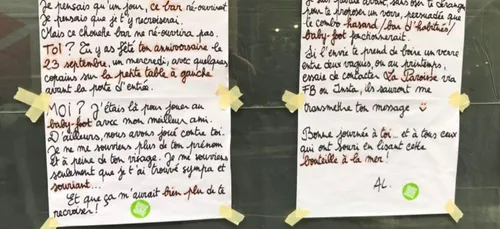 Je pensais qu'un jour, ce bar ré-ouvrirait
Je pensais que je t'y recroiserai.
Mais ce chouette bar ne ré-ouvrira pas.
TOI ? Tu y as fêté ton anniversaire le
23 septembre, un mercredi, avec quelques
copains sur la petite table à gauche
avant la porte d'entrée.
MOI ? J'étais là pour jouer au
baby-foot avec mon meilleur ami.
D'ailleurs, nous avons joué contre toi.
Je ne me souviens plus de ton prénom
et à peine de ton visage. Je me souviens
seulement que je t'ai trouvé sympa et
souriant...
Et que ça m'aurait bien plu de te
recroiser !
sans oser te déranger
pour te proposer un verre, persuadée que
le combo hasard / bar d'habitués /
baby-foot fonctionnerait.
Si l'envie te prend de boire un verre
entre deux vagues, ou au printemps,
essaie de contacter La Paroisse via
FB ou Insta, ils sauront me
transmettre ton message
Bonne journée à toi... et à tous ceux
qui ont souri en lisant cette
bouteille à la mer !
AL.